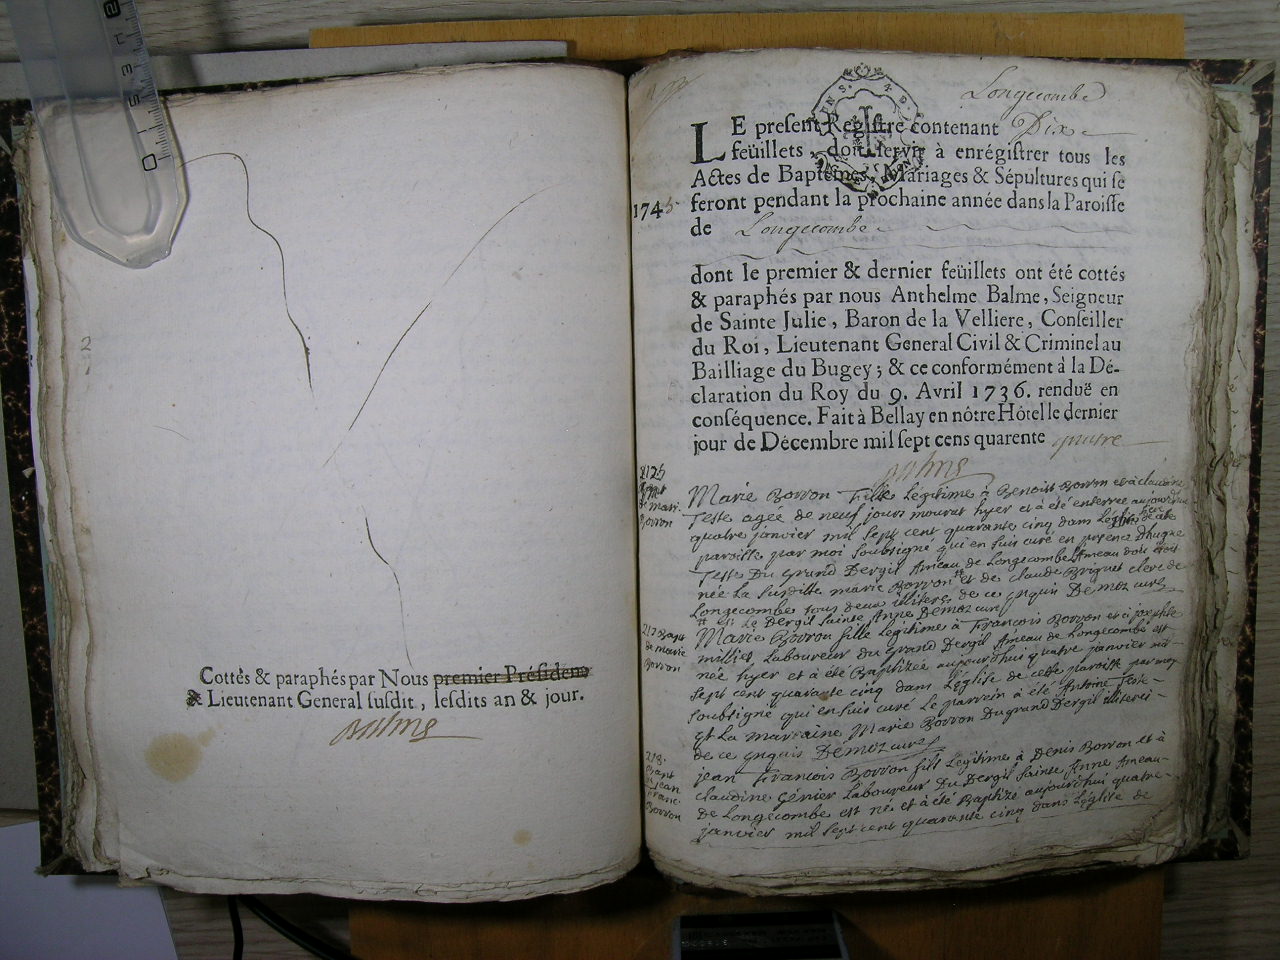 Cottés & paraphés par Nous premier Préſident
& Lieutenant General ſuſdit, leſdits an & jour.
Balme
Longecombe
LE preſent Regiſtre contenant Dix
feüillets, doit ſervir à enrégiſtrer tous les
Actes de Baptêmes, Mariages & Sépultures qui ſe
1745 feront pendant la prochaine année dans la Paroiſſe
de Longecombe
dont le premier & dernier feüillets ont été cottés
& paraphés par nous Anthelme Balme, Seigneur
de Sainte Julie, Baron de la Velliere, Conſeiller
du Roi, Lieutenant General Civil & Criminel au
Bailliage du Bugey; & ce conformément à la Dé-
claration du Roy du 9. Avril 1736. renduë en
conſéquence. Fait à Bellay en nôtre Hôtel le dernier
jour de Décembre mil ſept cens quarente quatre
Balme
de mari
Borron
Marie Borron fille Légitime à Benoist Borron et à claudine
Teste agée de neuf jours mourut hyer et à été enterrée aujourdhuy
quatre janvier mil sept cent quarante cinq dans
paroisse par moi soubsigné qui en suis curé en présence d'hugue
Teste Du grand Dergil Ameau de Longecombe Ameau dou étoit
née La susditte marie Borron et de claude Briguet clerc de
Longecombe tous deux illiterés de ce enquis Démoz curé
est Le Dergil Sainte Anne Démoz curé
217 Bapt
de marie
Borron
Marie Borron fille Légitime à François Borron et à josephte
milliet Laboureur du Grand Dergil Ameau de Longecombe est
née hyer et à été Baptizée aujourdhui quatre janvier mil
sept cent quarante cinq dans L'église de cette paroisse par moy
soubsigné qui en suis curé Le parrein à été Antoine Teste
et La marraine Marie Borron Du grand Dergil illiterés
de ce enquis Démoz curé
218.
Bapt
jean
Franc.
Borron
jean François Borron fils Légitime à Denis Borron et à
claudine Génier Laboureur Du Dergil Sainte Anne Ameau
de Longecombe est né et à été Baptizé aujourd'hui quatre
janvier mil sept cent quarante cinq dans L'église de